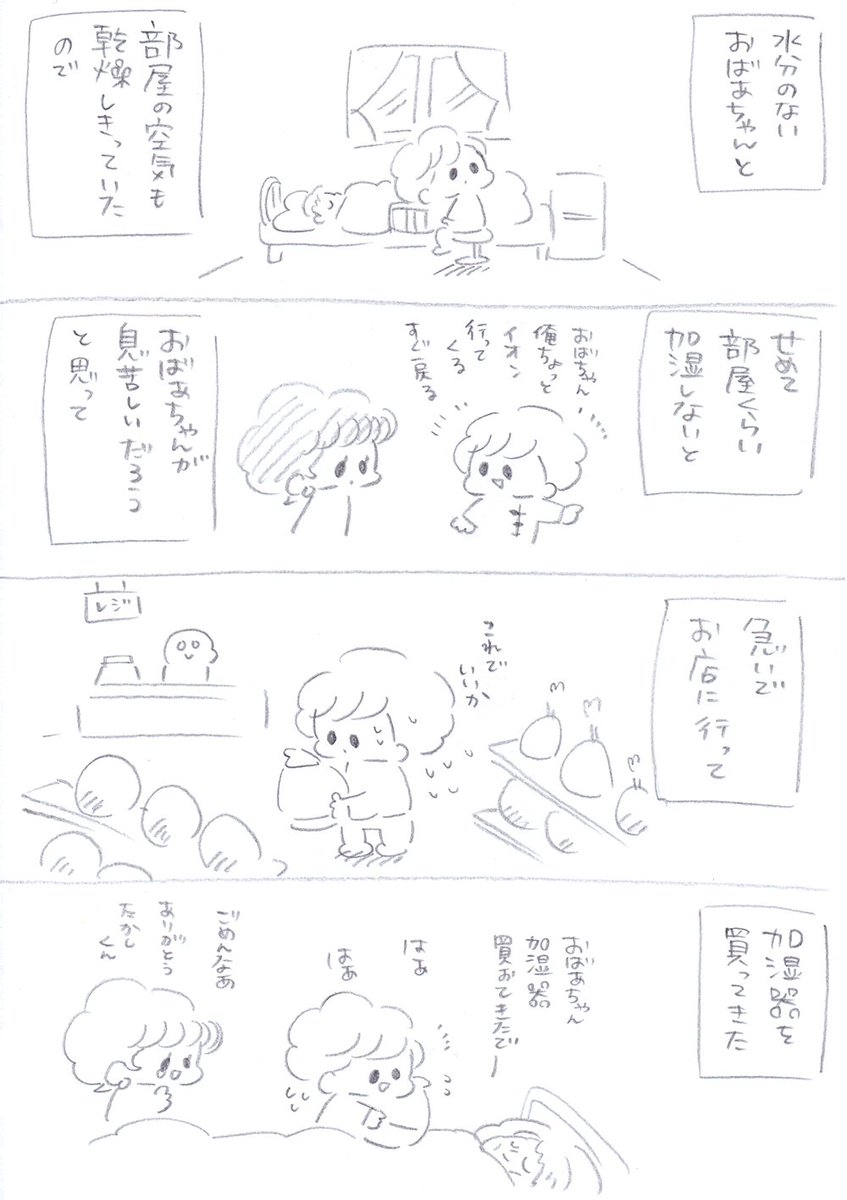 水分のない
おばあちゃんと
部屋の空気も
乾燥しきっていた
ので
せめて
部屋くらい
加湿しないと
おばちゃん
俺ちょっと
イオン
行って
くる
すぐ戻る
おばあちゃんが
息苦しいだろう
と思って
急いで
お店に行って
これで
いいか
レジ
加湿器を
買ってきた
おばあちゃん
加湿器
買おてきたでー
はぁ
はぁ
ごめんなぁ
ありがとう
たかし
くん